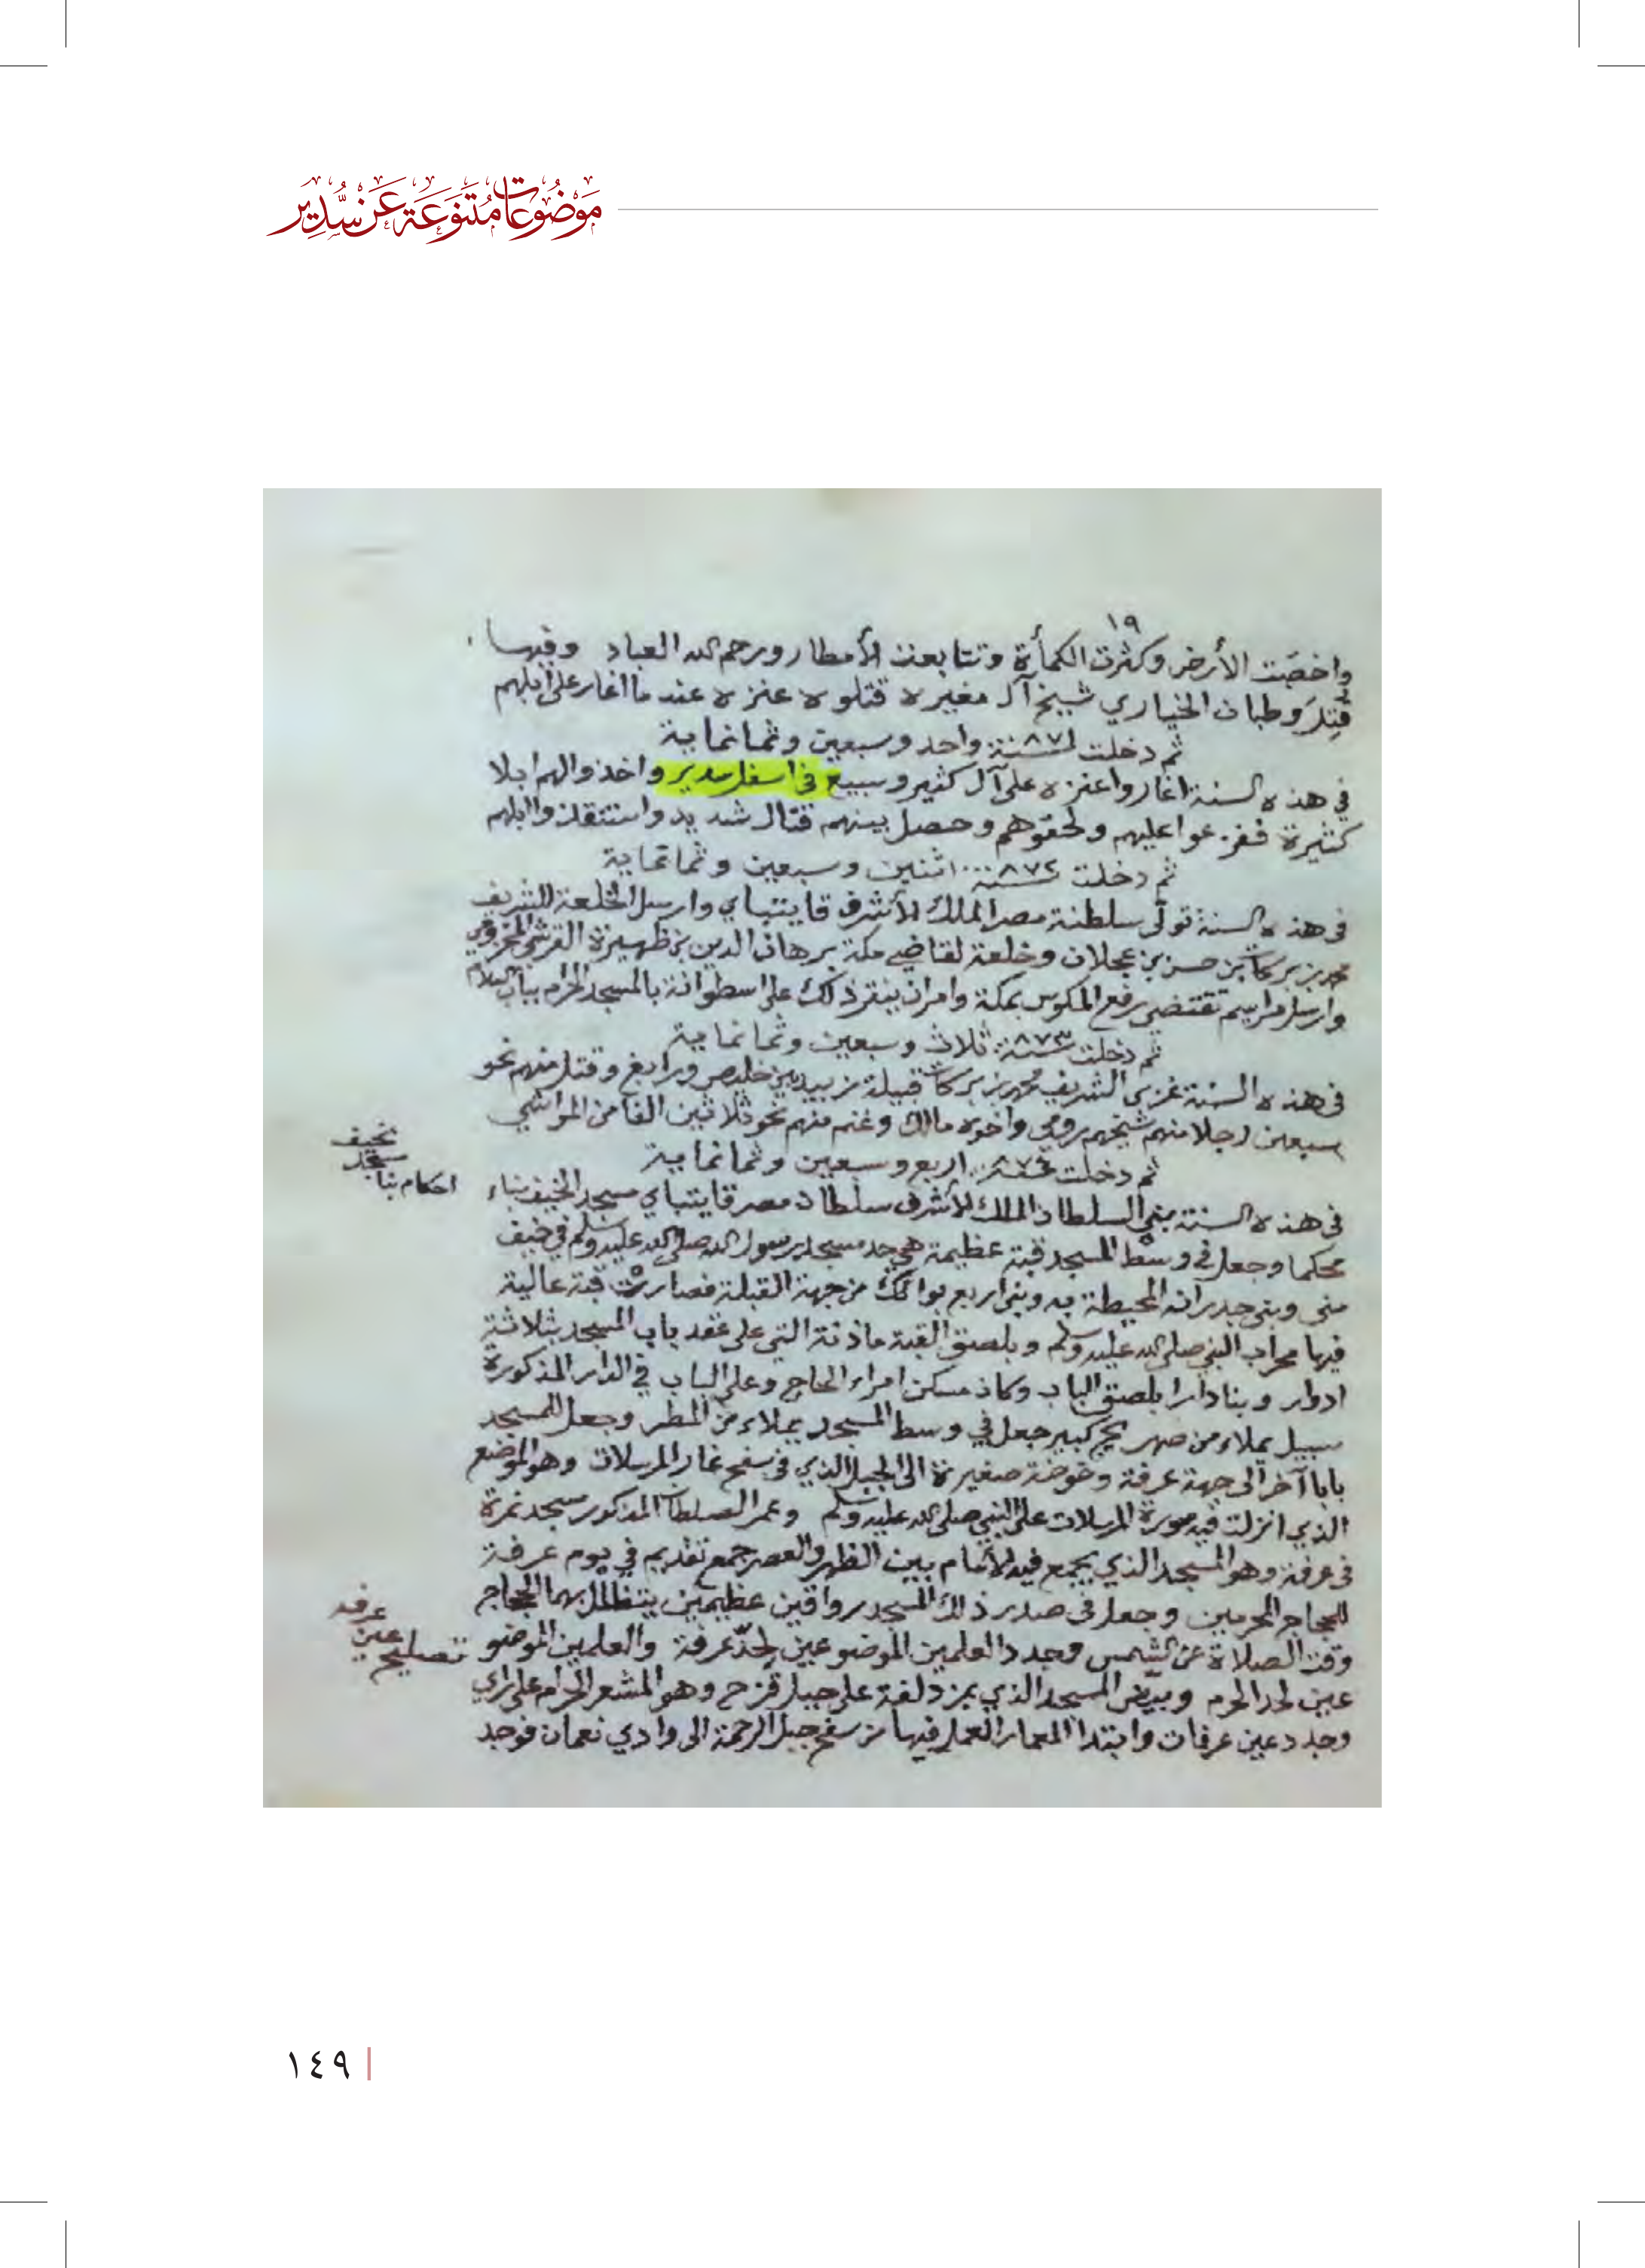 موضوعات متنوعة عن سدير
١٩
واخصبت الأرض وكثرت الكمأة وتتابعت الأمطار ورحم الله العباد وفيها
قُتِلَ وطبان الخياري شيخ آل مغيره قتلوه عنزه عند ما اغار على ابلهم
ثم دخلت سنة ٨٧١ واحد وسبعين وثمانماية
في هذه السنة اغاروا عنزه على آل كثير وسبيع في اسفل سدير واخذوا لهم ابلا
كثيرة ففزعوا عليهم ولحقوهم وحصل بينهم قتال شديد واستنقذوا ابلهم
ثم دخلت سنة ٨٧٢ اثنين وسبعين وثمانماية
في هذه السنة تولّى سلطنة مصر الملك الأشرف قايتباي وارسل الخلعة للشريف
محمد بن بركات بن حسن بن عجلان وخلعة لقاضي مكة برهان الدين بن ظهيرة القرشي المخزومي
وارسل مراسيم تقتضي رفع المكوس بمكة وامر ان ينقر ذلك على اسطوانة بالمسجد الحرام بباب السلام
ثم دخلت سنة ٨٧٣ ثلاث وسبعين وثمانماية
في هذه السنة غزى الشريف محمد بن بركات قبيلة زبيد بين خليص ورابغ وقتل منهم نحو
سبعين رجلا منهم شيخهم رومي واخوه مالك وغنم منهم نحو ثلاثين الفا من المواشي
ثم دخلت سنة ٨٧٤ اربع وسبعين وثمانماية
في هذه السنة بنى السلطان الملك الأشرف سلطان مصر قايتباي مسجد الخيف بناء
احكام بنا مسجد نخيف
محكما وجعل في وسط المسجد قبة عظيمة هي حد مسجد رسول الله صلى الله عليه وسلم في خيف
منى وبنى جدرانه المحيطة به وبنى اربع بوائك من جهة القبلة فصارت قبة عالية
فيها محراب النبي صلى الله عليه وسلم وبلصق القبة ماذنة التي على عقد باب المسجد بثلاثة
ادوار وبنا دارا بلصق الباب وكان مسكن امراء الحاج وعلى الباب في الدار المذكورة
سبيل يملاء من صهريج كبير جعل في وسط المسجد يملاء من المطر وجعل للمسجد
بابا آخر الى جهة عرفة وخوخة صغيرة الى الجبل الذي في سفح غار المرسلات وهو الموضع
الذي انزلت فيه سورة المرسلات على النبي صلى الله عليه وسلم وعمر السلطان المذكور مسجد نمرة
في عرفة وهو المسجد الذي يجمع فيه الأمام بين الظهر والعصر جمع تقديم في يوم عرفة
للحجاج المحرمين وجعل في صدر ذلك المسجد رواقين عظيمين يتظلل بهما الحجاج
وقت الصلاة عن الشمس وجدد العلمين الموضوعين لحدّ عرفة والعلمين الموضو
تصليح عين عرفه
عين لحد الحرم وبيّض المسجد الذي بمزدلفة على جبل قزح وهو المشعر الحرام على راي
وجدد عين عرفات وابتدا المعمار العمل فيها من سفح جبل الرحمة الى وادي نعمان فوجد
١٤٩